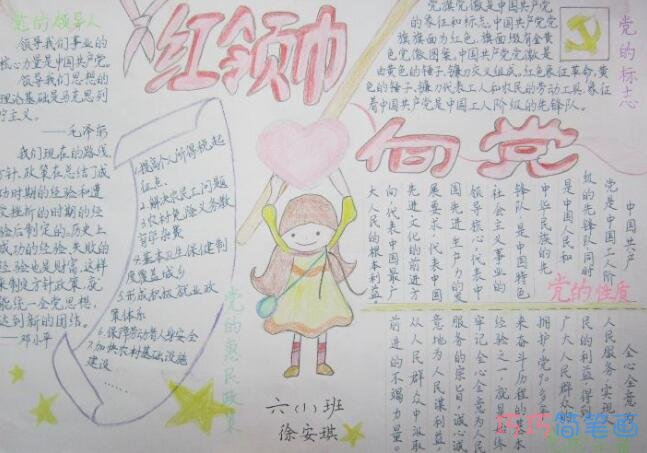 红领巾
向党
党的领导人
领导我们事业的
核心力量是中国共产党,
领导我们思想的
理论基础是马克思列
宁主义。
——毛泽东
我们现在的路线、
方针、政策在总结了成
功时期的经验和遭
受挫折的时期的经
验后制定的。历史上
成功的经验、失败的
经验也是财富,这样
来制定方针政策,就
能统一全党思想,
达到新的团结。
——邓小平
1.提高个人所得税起
征点
2.解决农民工问题
3.农村免除义务教
育学杂费
4.基本卫生保健制
度覆盖城乡
5.形成积极就业政
策体系
6.保障劳动者人身安全
7.加快农村基础设施
建设……
党的惠民政策
党旗党徽是中国共产党
的象征和标志。中国共产党党
旗旗面为红色,旗面缀有金黄
色党徽图案。中国共产党党徽是
由黄色的锤子、镰刀交叉组成。红色象征革命,黄
色的锤子、镰刀代表工人和农民的劳动工具,象征
着中国共产党是中国工人阶级的先锋队。
党的标志
中国共产
党是中国工人阶
级的先锋队同时
是中国人民和
中华民族的先
锋队,是中国特色
社会主义事业的
领导核心,代表中
国先进生产力的发
展要求,代表中国
先进文化的前进方
向,代表中国最广
大人民的根本利益
党的性质
全心全意
人民服务实现
民的利益,得到
广大人民群众的
拥护,党90多年
来奋斗历程的基本
经验之一,就是始终
牢记全心全意为人民
服务的宗旨,诚心诚
意地为人民谋利益,
从人民群众中汲取
前进的不竭力量。
六(1)班
徐安琪
巧巧简笔画